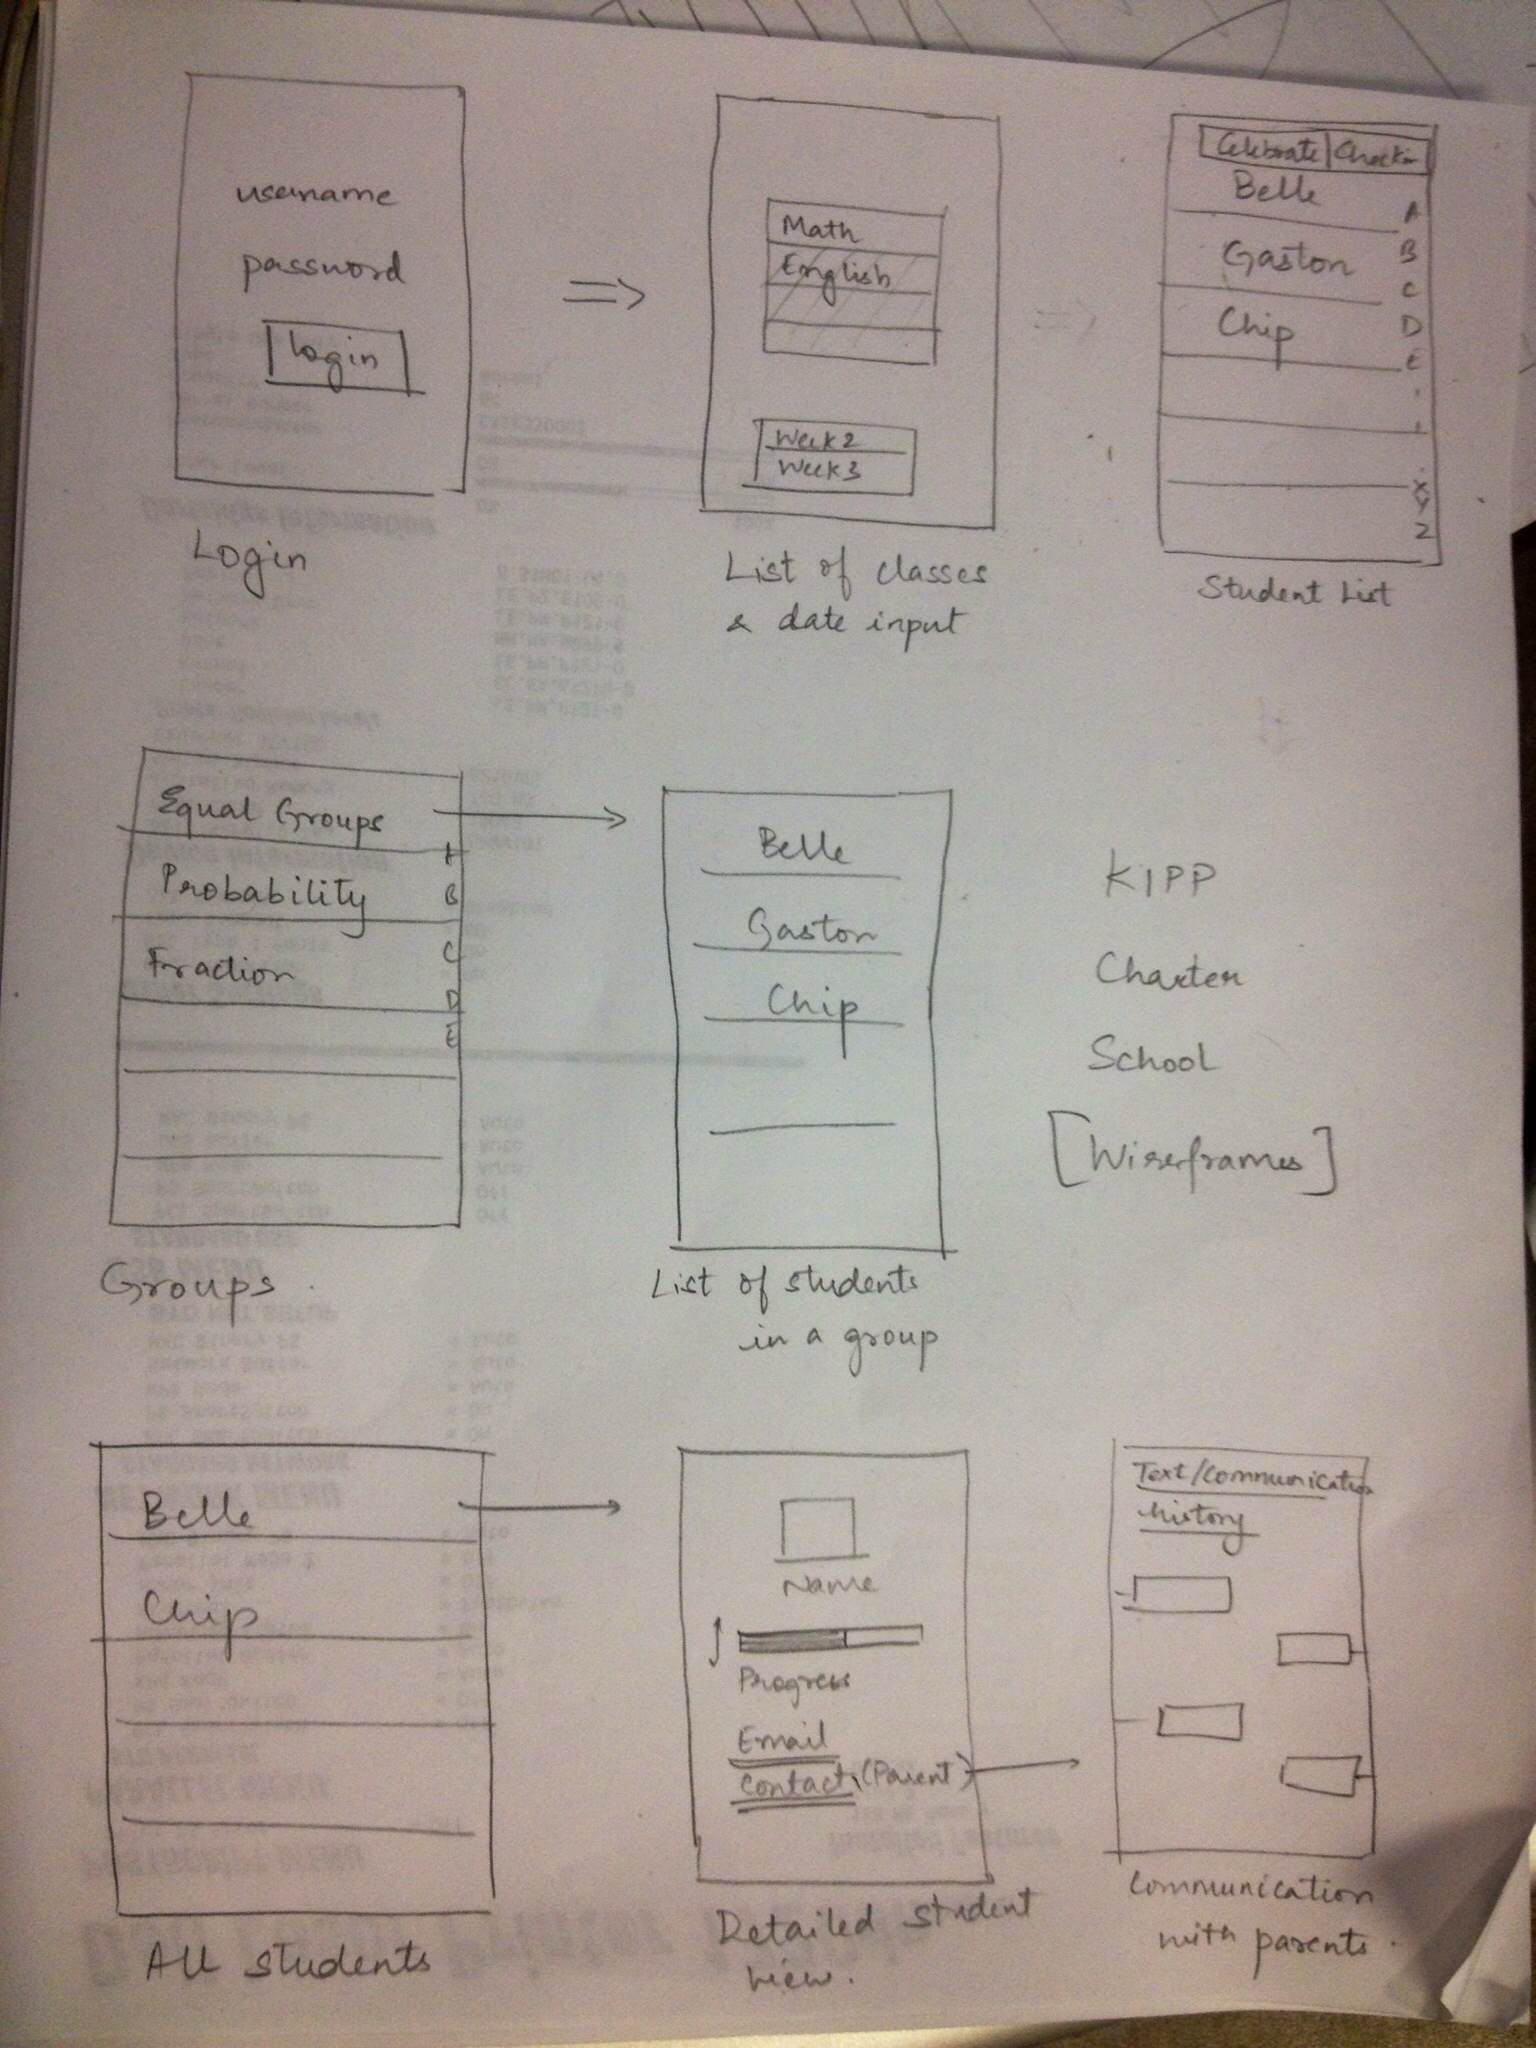 username
password
Login
Login
Math
English
Week2
Week3
List of classes
& date input
Celebrate
Checkin
Belle
Gaston
Chip
A
B
C
D
E
X
Y
Z
Student List
Equal Groups
Probability
Fraction
A
B
C
D
E
Groups.
Belle
Gaston
Chip
List of students
in a group
KIPP
Charter
School
[Wireframes]
Belle
Chip
All students
Name
Progress
Email
Contact (Parent)
Detailed student
view.
Text/Communication
history
Communication
with parents.